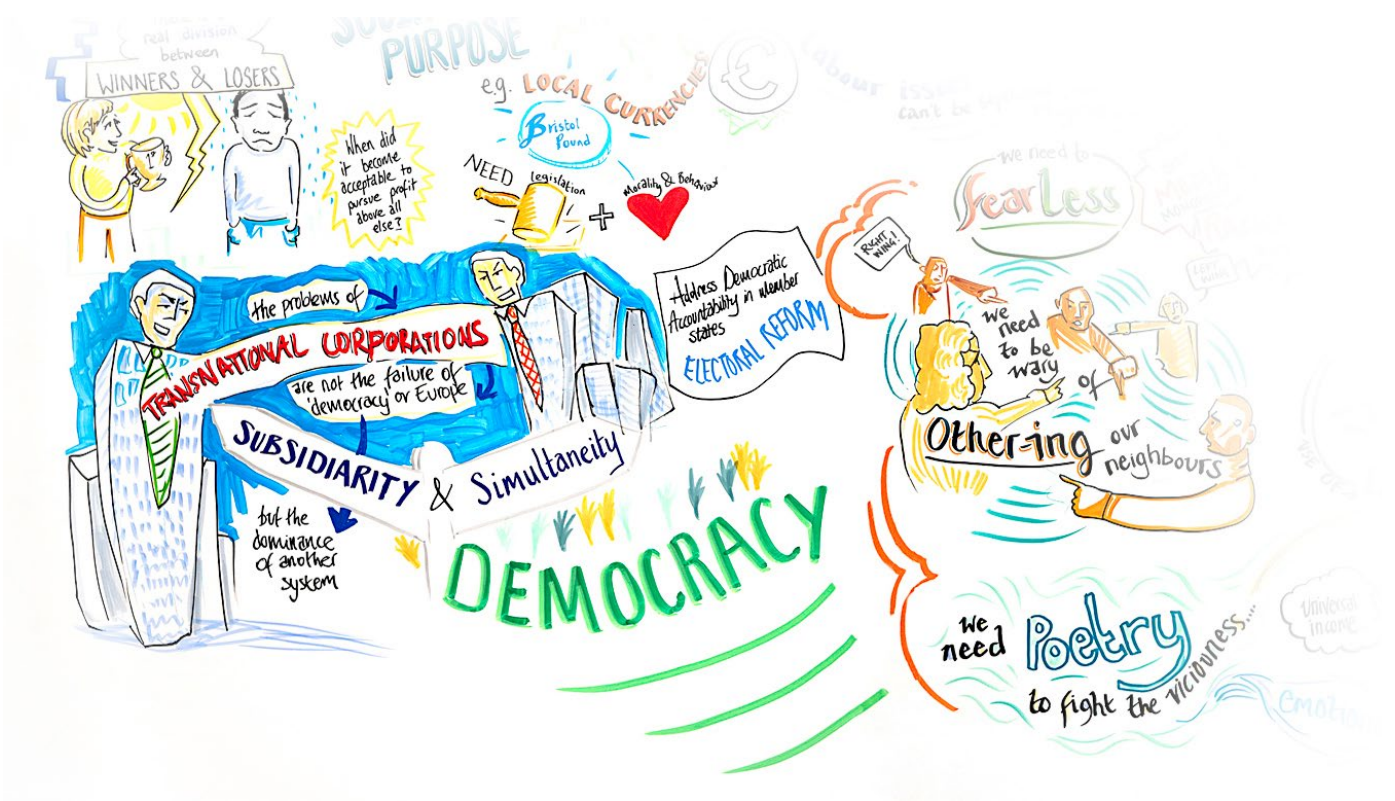 real division
between
WINNERS & LOSERS
1st
When did
it become
acceptable to
pursue profit
above all
else?
PURPOSE
e.g. LOCAL CURRENCIES
Bristol
Pound
NEED legislation
+
Morality & Behaviour
£
Labour
can't be
the problems of
TRANSNATIONAL CORPORATIONS
are not the failure of
'democracy' or Europe
SUBSIDIARITY & Simultaneity
but the
dominance
of another
system
Address Democratic
Accountability in member
states
ELECTORAL REFORM
DEMOCRACY
we need to
fear Less
RIGHT
WING!
LEFT
WING
we
need
to be
wary
of
Other-ing our
neighbours
we
need Poetry
to fight the viciousness....
universal
income